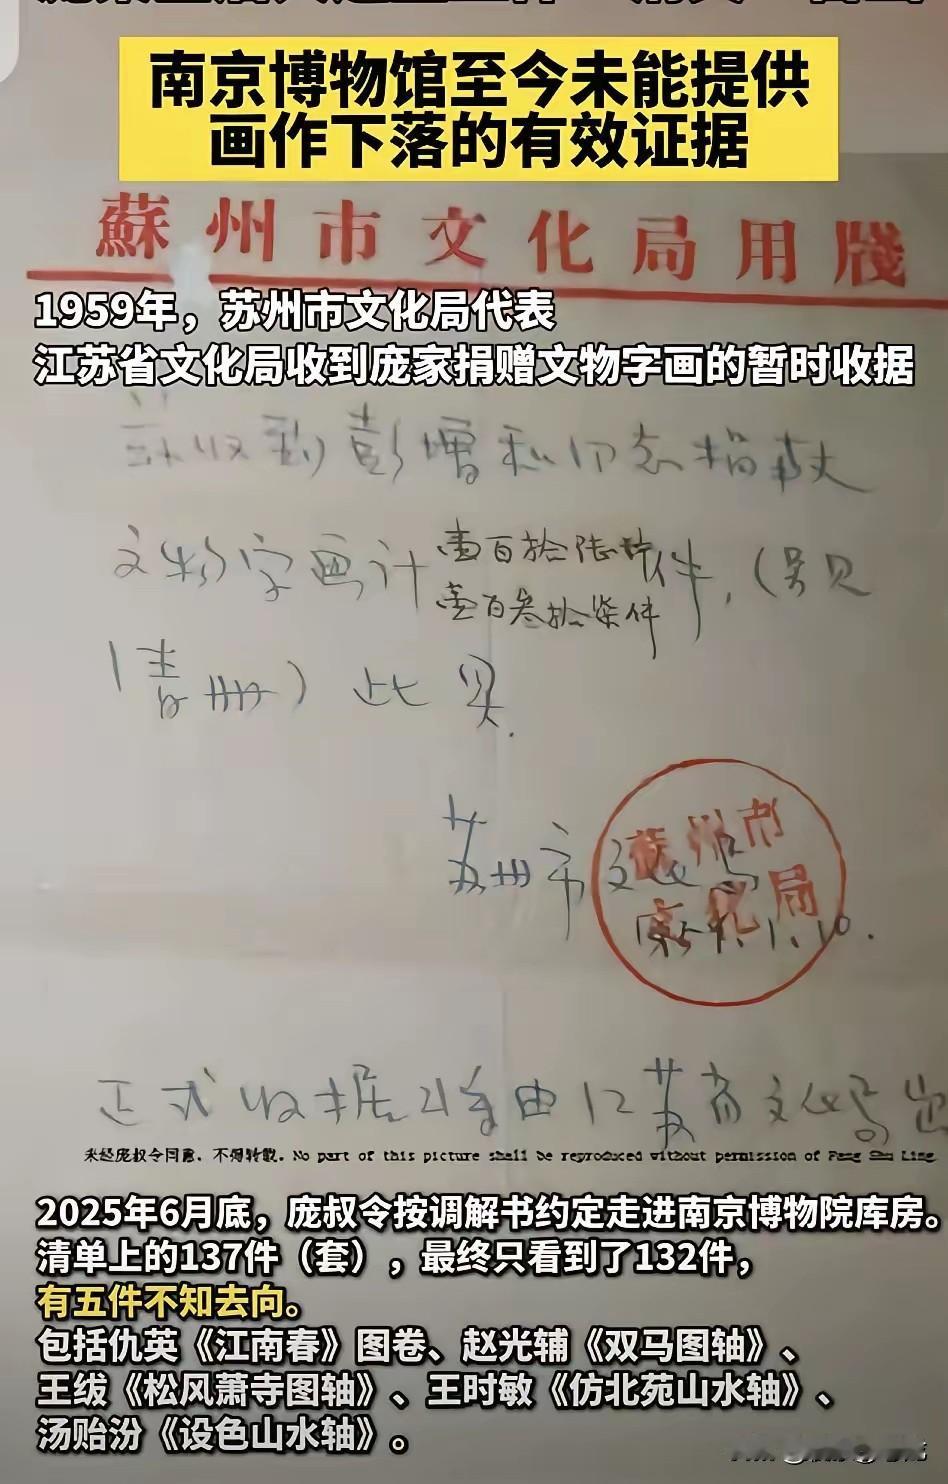 南京博物馆至今未能提供
画作下落的有效证据
蘇州市文化局用牋
1959年，苏州市文化局代表
江苏省文化局收到庞家捐赠文物字画的暂时收据
兹收到彭增和同志捐献
文物字画计壹百拾陆件件，（另见
壹百叁拾柒件
清册）此具
苏州市文化局
蘇州市文化局
59.1.10.
正式收据将由江苏省文化局出
未经庞叔令同意，不得转载。No part of this picture shall be reproduced without permission of Pang Shu Ling
2025年6月底，庞叔令按调解书约定走进南京博物院库房。
清单上的137件（套），最终只看到了132件，
有五件不知去向。
包括仇英《江南春》图卷、赵光辅《双马图轴》、
王绂《松风萧寺图轴》、王时敏《仿北苑山水轴》、
汤贻汾《设色山水轴》。